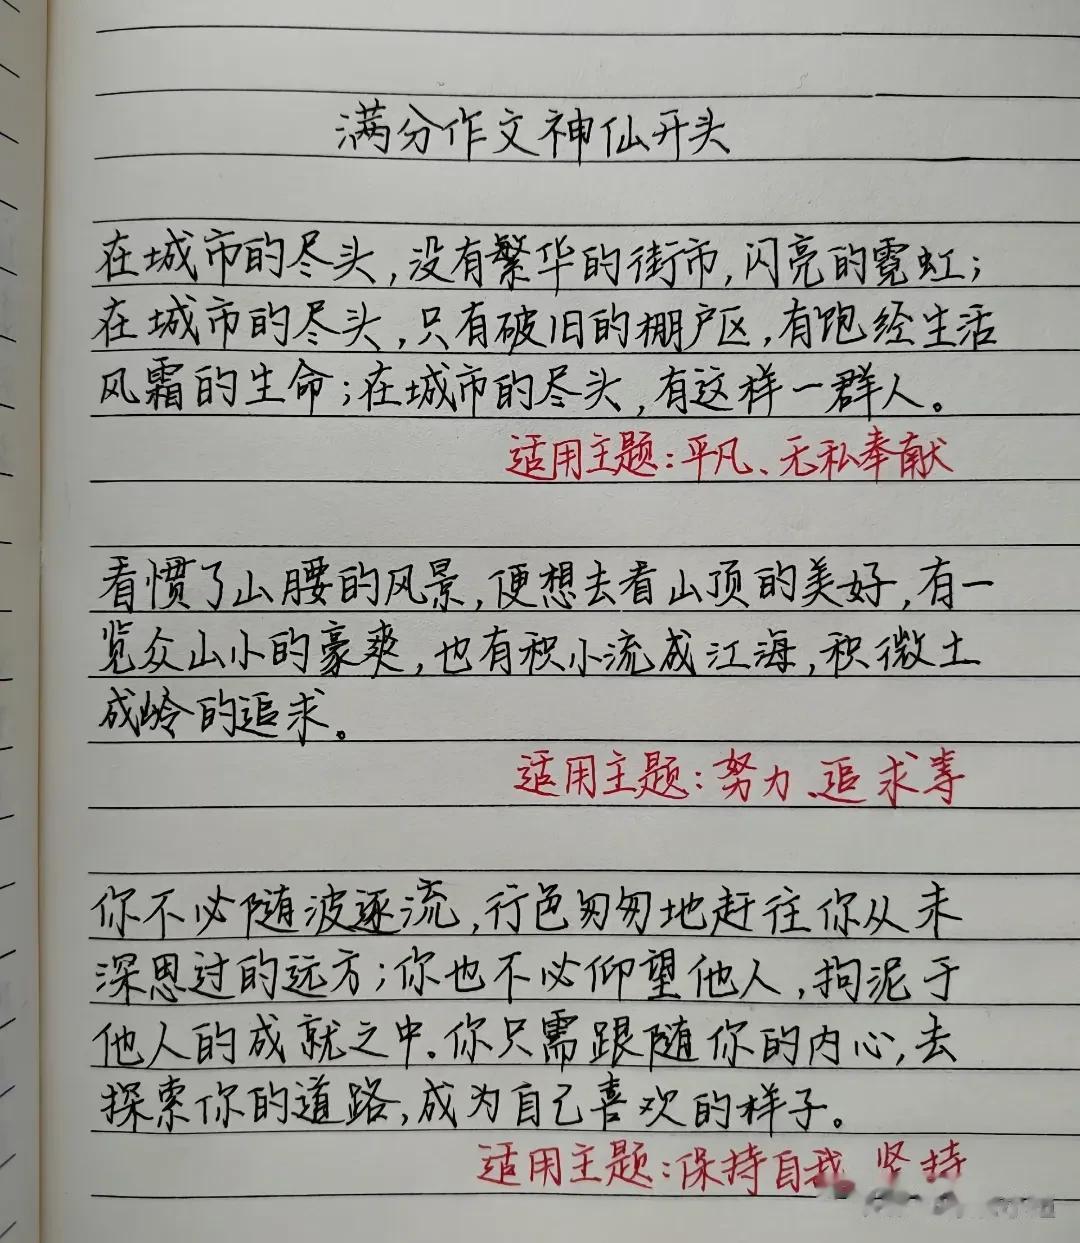 满分作文神仙开头
在城市的尽头,没有繁华的街市,闪亮的霓虹;
在城市的尽头,只有破旧的棚户区,有饱经生活
风霜的生命;在城市的尽头,有这样一群人。
适用主题:平凡、无私奉献
看惯了山腰的风景,便想去看山顶的美好,有一
览众山小的豪爽,也有积小流成江海,积微土
成岭的追求。
适用主题:努力、追求等
你不必随波逐流,行色匆匆地赶往你从未
深思过的远方;你也不必仰望他人,拘泥于
他人的成就之中。你只需跟随你的内心,去
探索你的道路,成为自己喜欢的样子。
适用主题:保持自我、坚持